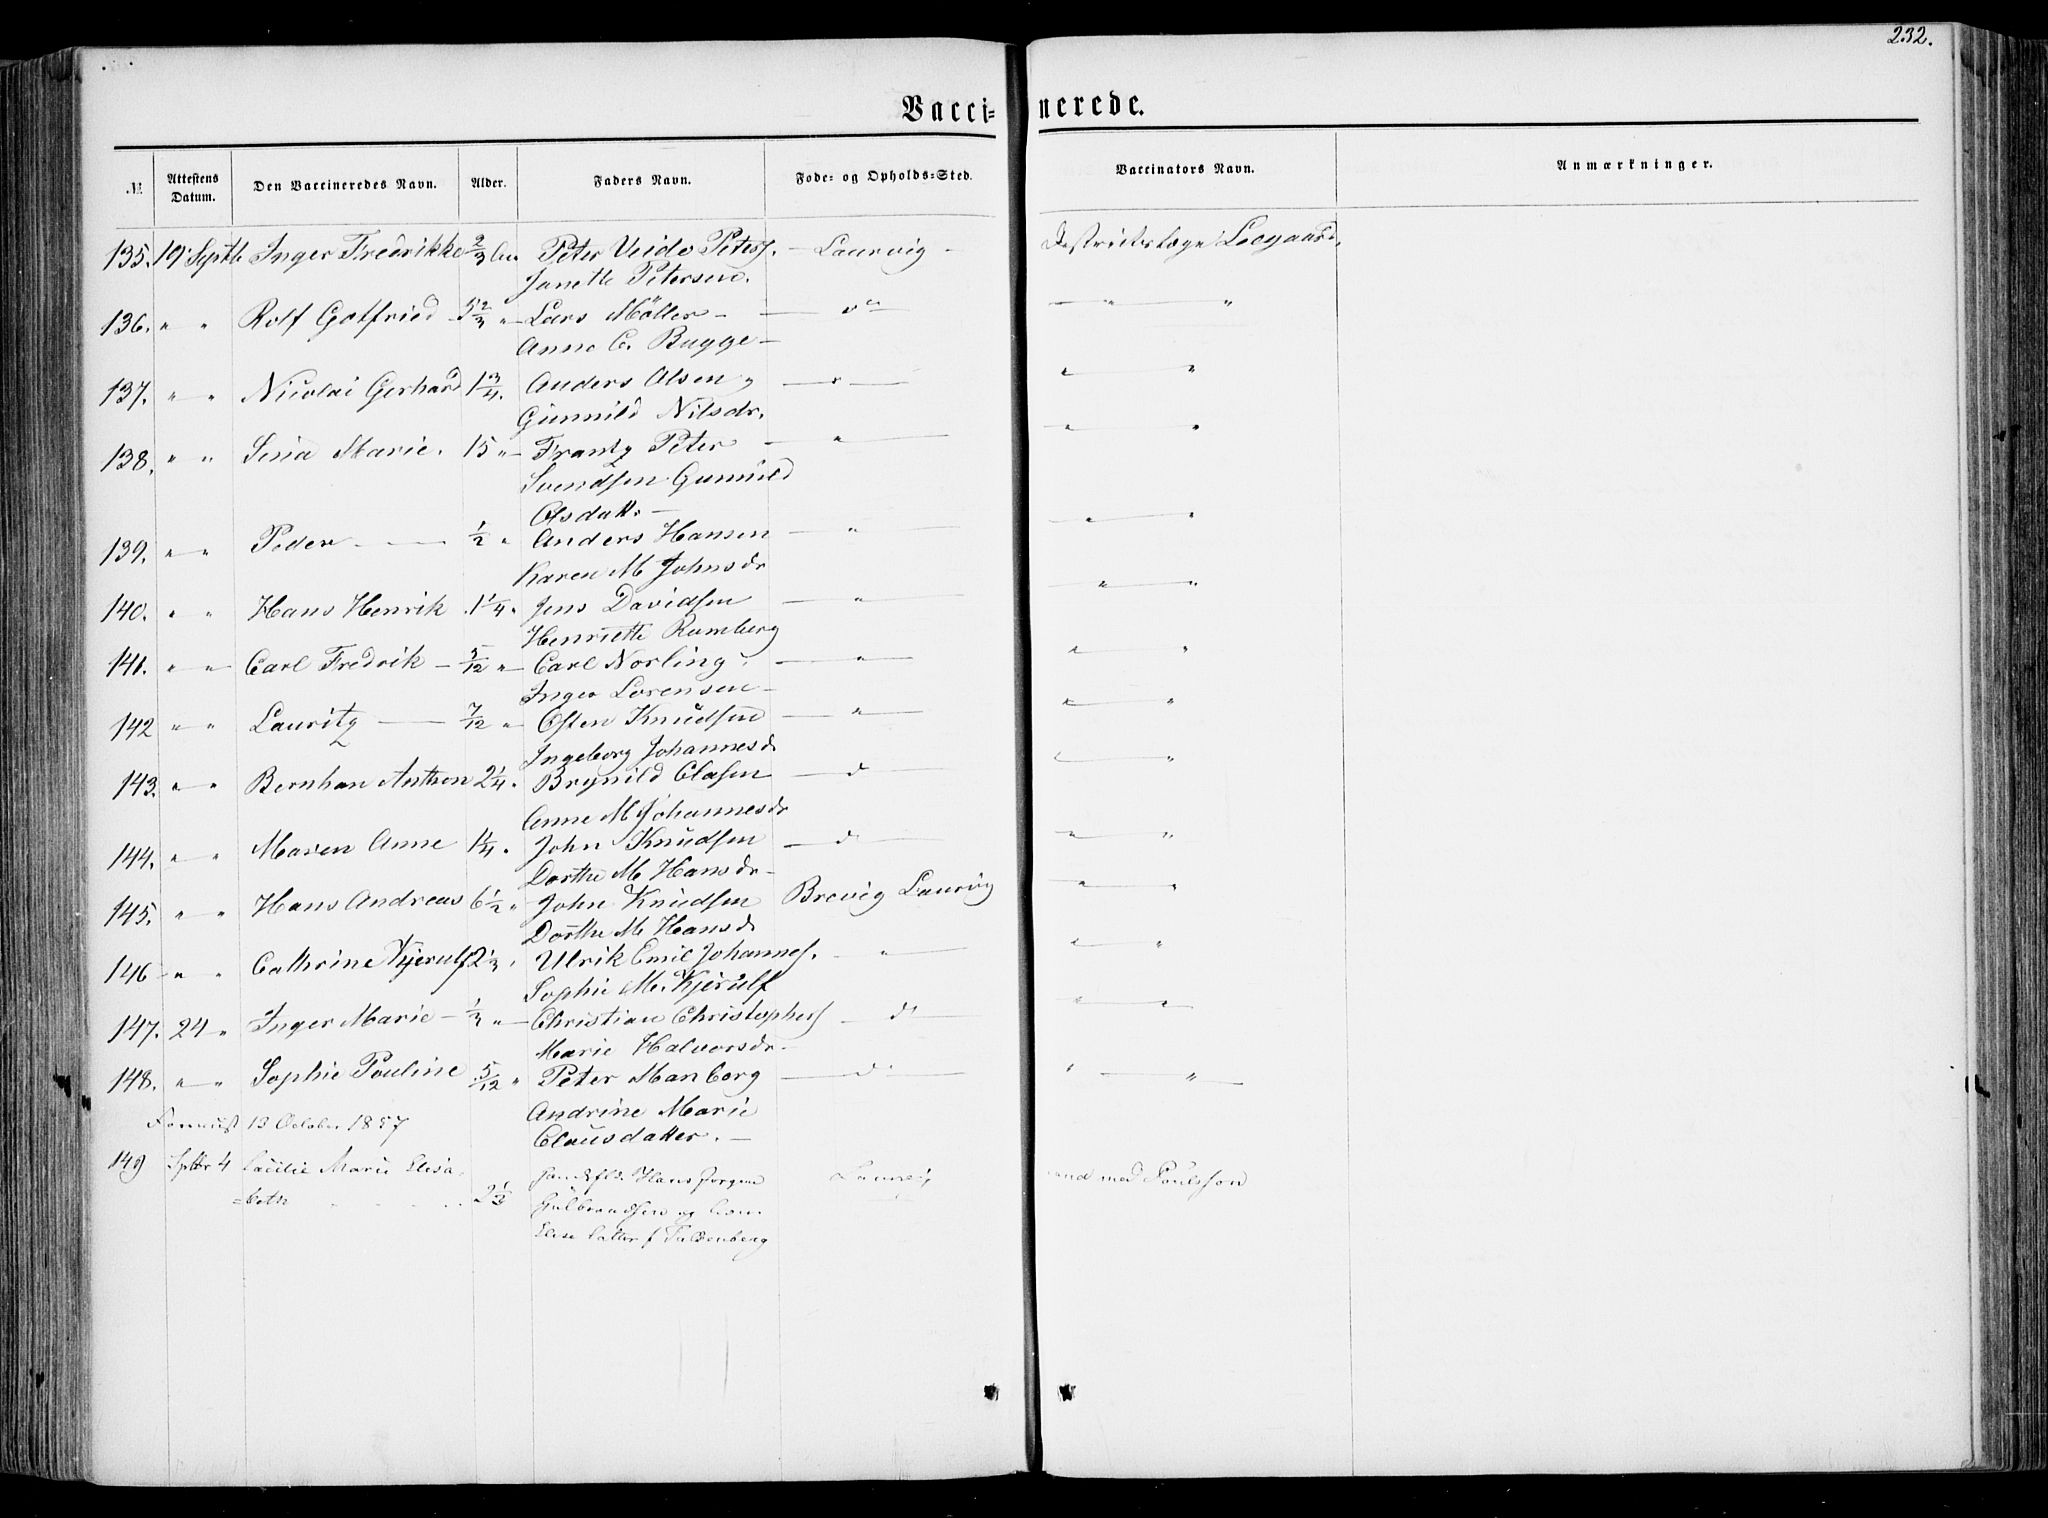 232.
Vacci-nerede.
№ Attestens Datum. Den Vaccineredes Navn. Alder. Faders Navn. Føde- og Opholds-Sted. Vaccinators Navn. Anmærkninger.
135. 19 Septbr Inger Fredrikke 2/3 Peter Peters. — Laurvig —
Janette Petersen.
136. " " Rolf Gotfried 5 2/3 " Lars Möller — do
Anne C. Bugge —
137. " " Nicolai Gerhard 1 3/4. Anders Olsen — " —
Gunnild Nilsdr.
138. " " Marie. 15 " Frantz Peter — " —
Svendsen Gunnild
Olsdatt. —
139. " " Peder — 1/2 " Anders Hansen — " —
Karen M Johnsdr
140. " " Hans Henrik 1 1/4 " Jens Davidsen — " —
Henriette Ramberg
141. " " Carl Fredrik — 5/12 " Carl Norling — " —
Inger Lorensen —
142 " " Lauritz — 7/12 " Osten Knudsen — " —
Ingeborg Johannesd.
143. " " Bernhan Anthon 2 1/4 " Brynild Olasen — d —
Anne M Johannesdr
144. " " Maren Anne 1 1/4 " John Knudsen — d —
Dorthe M Hansdr —
145. " " Hans Andreas 6 1/2 " John Knudsen Brevig Laurvig " "
Dorthe M Hansd.
146 " " Cathrine Kjerulf 2 1/3 " Ulrik Emil Johannes. — " —
Sophie M. Kjerulf
147. 24 " Inger Marie — 1/3 " Christian Christophers — do —
Marie Halvorsdr.
148. " " Sophie Pouline 5/12 " Peter Manberg — d —
Andrine Marie
13 October 1857
Clausdatter. —
149 Septbr 4 Cecilie Marie Elisa-
=beth 2 1/3 Hans Jørgen
Gulbrandsen og
Elise Falkenberg
med Poulsson